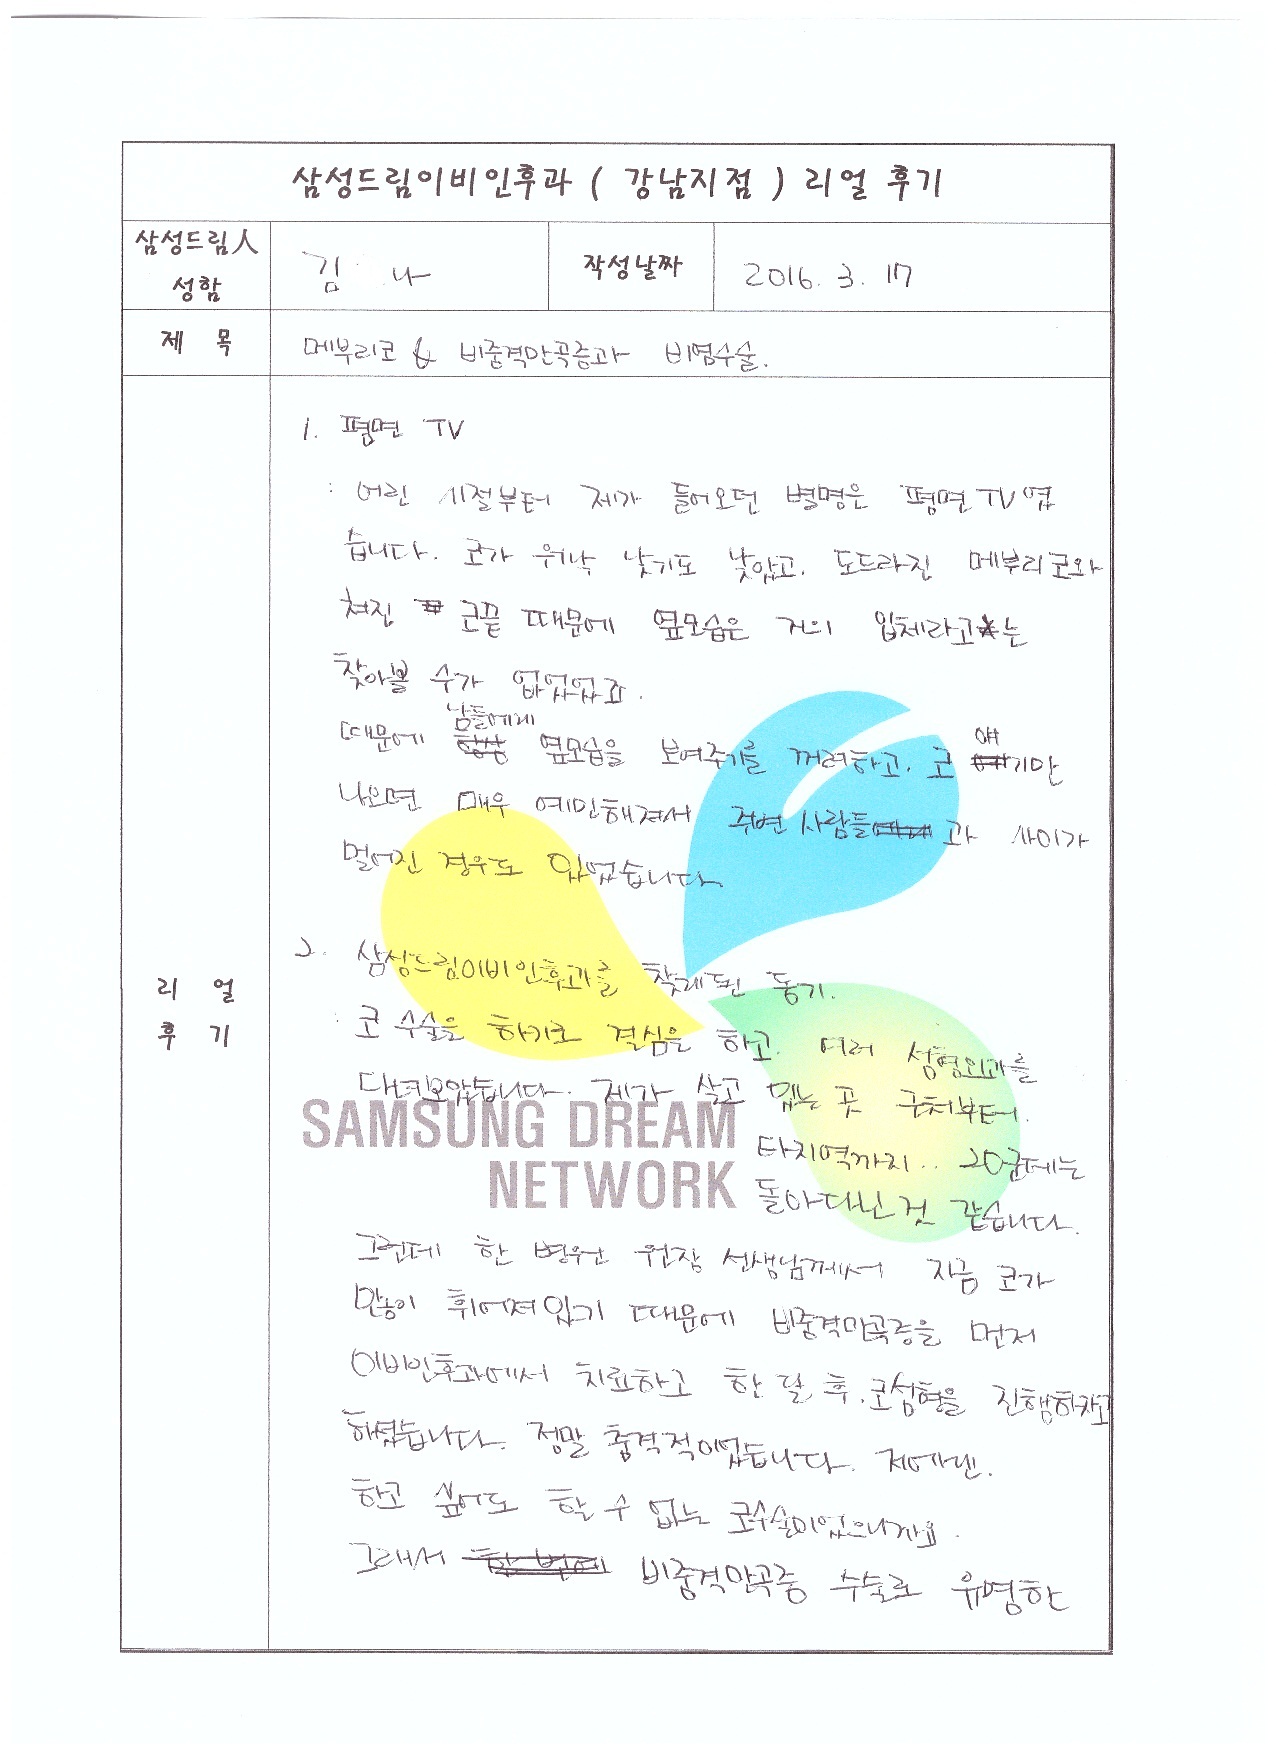 삼성드림이비인후과 ( 강남지점 ) 리얼 후기
삼성드림人 성함
김 나
작성날짜
2016. 3. 17
제 목
메부리코 & 비중격만곡증과 비염수술.
리 얼 후 기
1. 평면 TV
: 어린 시절부터 제가 들어오던 별명은 평면TV였
습니다. 코가 워낙 낮기도 낮았고, 도드라진 메부리코와
쳐진 코끝 때문에 옆모습은 거의 입체라고는
찾아볼 수가 없었었죠.
때문에 남들에게 옆모습을 보여주기를 꺼려하고, 코 얘기만
나오면 매우 예민해져서 주변 사람들과 사이가
멀어진 경우도 있었습니다.
2. 삼성드림이비인후과를 찾게된 동기.
: 코 수술을 하기로 결심을 하고, 여러 성형외과를
다녀보았습니다. 제가 살고 있는 곳 근처부터.
타지역까지.. 20군데는
돌아다닌 것 같습니다.
SAMSUNG DREAM
NETWORK
그런데 한 병원 원장 선생님께서 지금 코가
많이 휘어져있기 때문에 비중격만곡증을 먼저
이비인후과에서 치료하고 한 달 후, 코성형을 진행하자고
하셨습니다. 정말 충격적이었습니다. 저에겐.
하고 싶어도 할 수 없는 코수술이었으니까요.
그래서 비중격만곡증 수술로 유명한